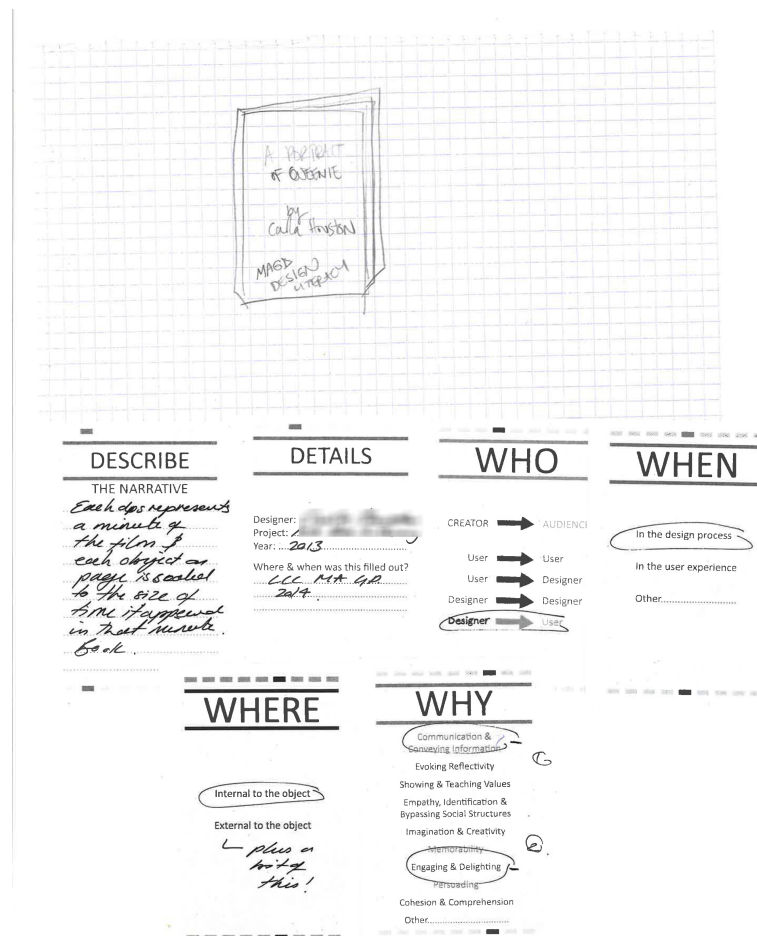 A PORTRAIT
OF QUEENIE
by
Carla Houston
MAGD
DESIGN
LITERACY
DESCRIBE
THE NARRATIVE
Each dps represents
a minute of
the film &
each object on
page is scaled
to the size of
time it appeared
in that minute.
Book.
DETAILS
Designer:
Project:
Year: 2013
Where & when was this filled out?
LCC MA GD
2014.
WHO
CREATOR AUDIENCE
User User
User Designer
Designer Designer
Designer User
WHEN
In the design process
In the user experience
Other
WHERE
Internal to the object
External to the object
plus a
bit of
this!
WHY
Communication &
Conveying Information
Evoking Reflectivity
Showing & Teaching Values
Empathy, Identification &
Bypassing Social Structures
Imagination & Creativity
Memorability
Engaging & Delighting
Persuading
Cohesion & Comprehension
Other